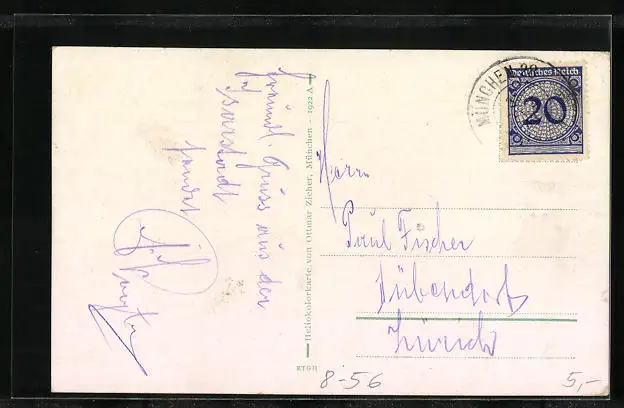 Freundl. Gruss aus der
Isarstadt
sendet
Heliokolorkarte von Ottmar Zieher, München – 1922 A
MÜNCHEN
Deutsches Reich
20
Herrn
Paul Fischer
Dübendorf
Zürich
RTGH
8-56
5,-